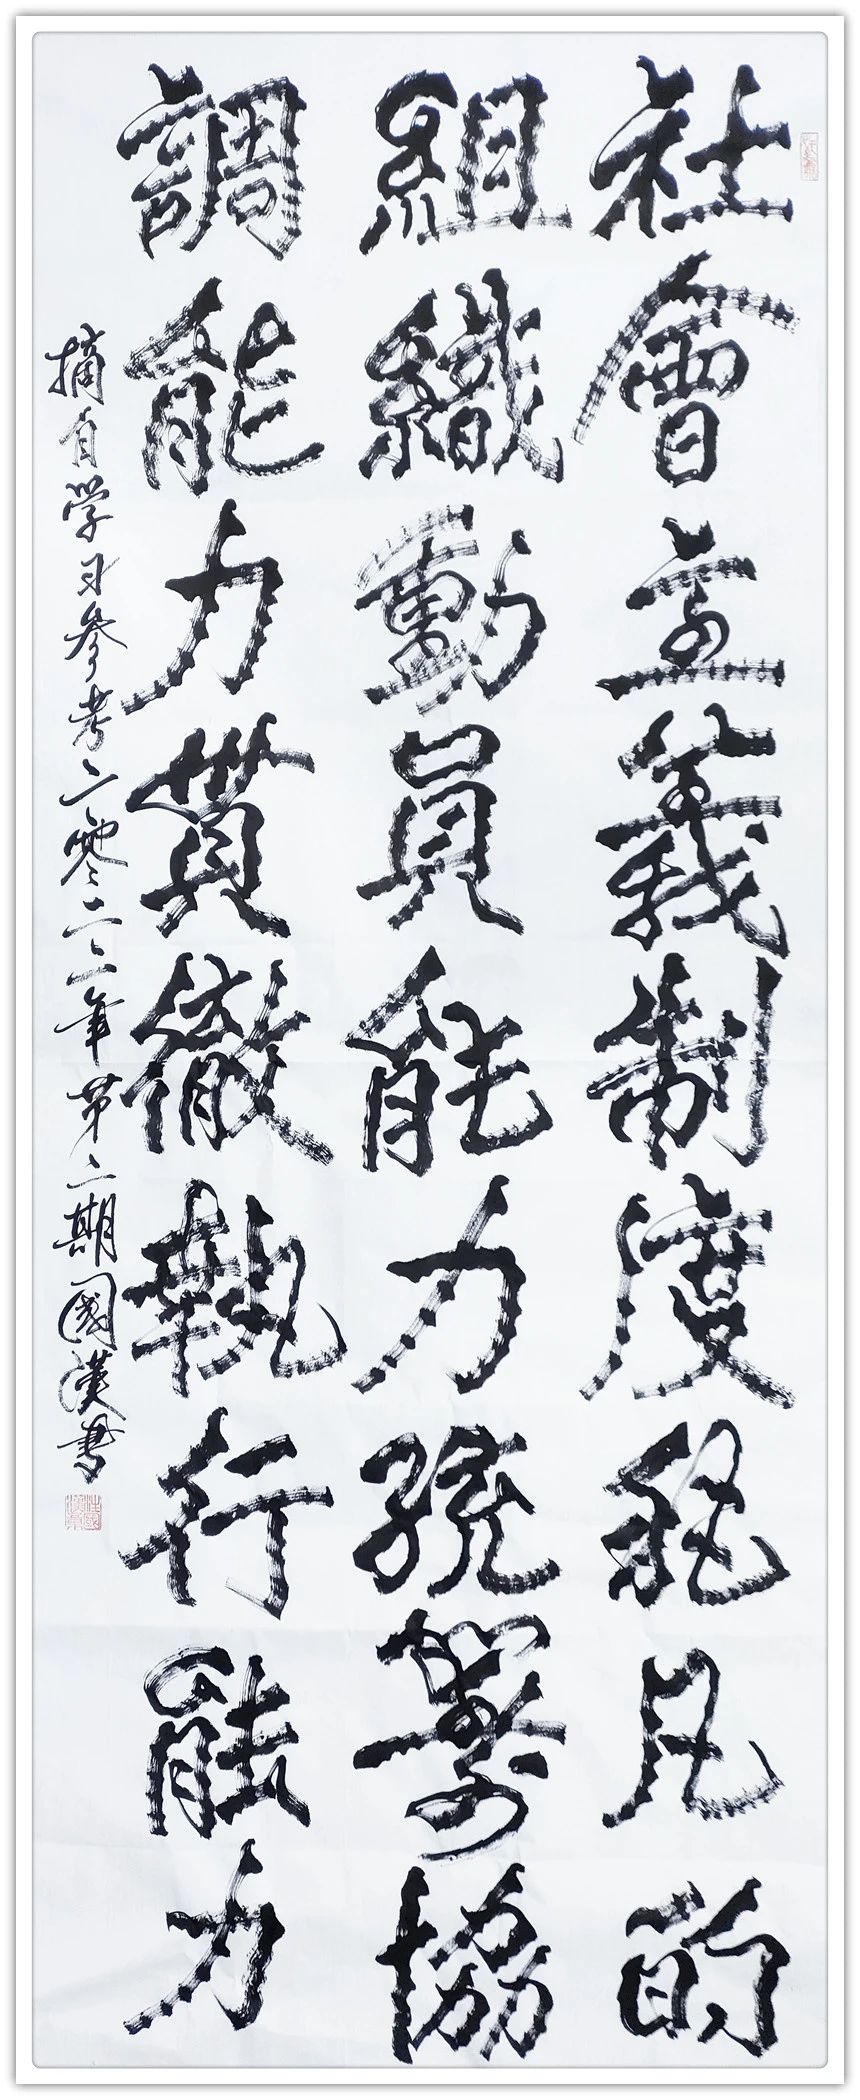 社會主義制度非凡的
組織動員能力統籌協
調能力貫徹執行能力
摘自学习参考二零二二年第二期國漢書